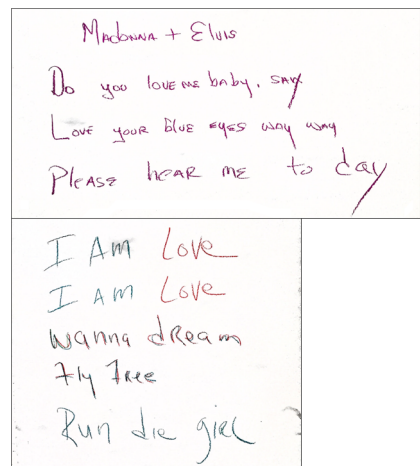 Madonna + Elvis
Do you love me baby. say
Love your blue eyes way way
Please hear me to day
I Am Love
I am Love
wanna dream
Fly Free
Run die girl